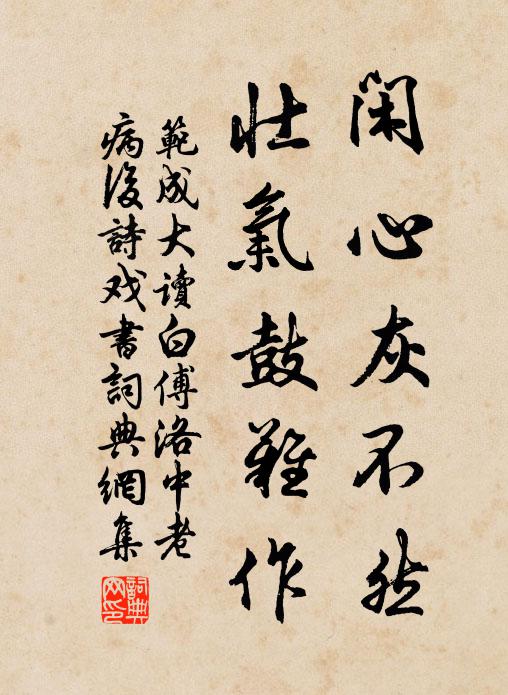 閑心灰不然
壯氣鼓難作
範成大讀白傅洛中老
病後詩戏書詞典網集
詞典网印